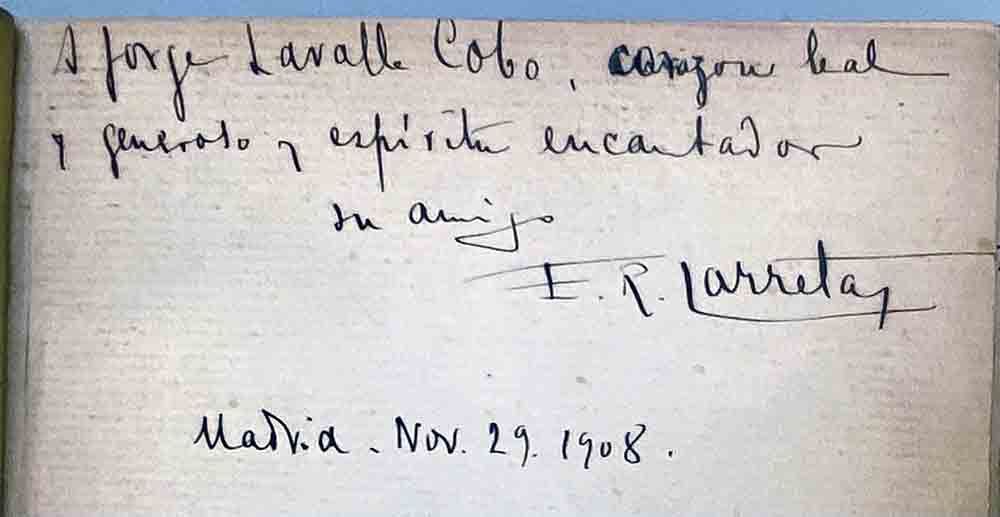 A Jorge Lavalle Cobo, corazon leal
y generoso y espíritu encantador
su amigo
E. R. Larreta
Madrid. Nov. 29. 1908.